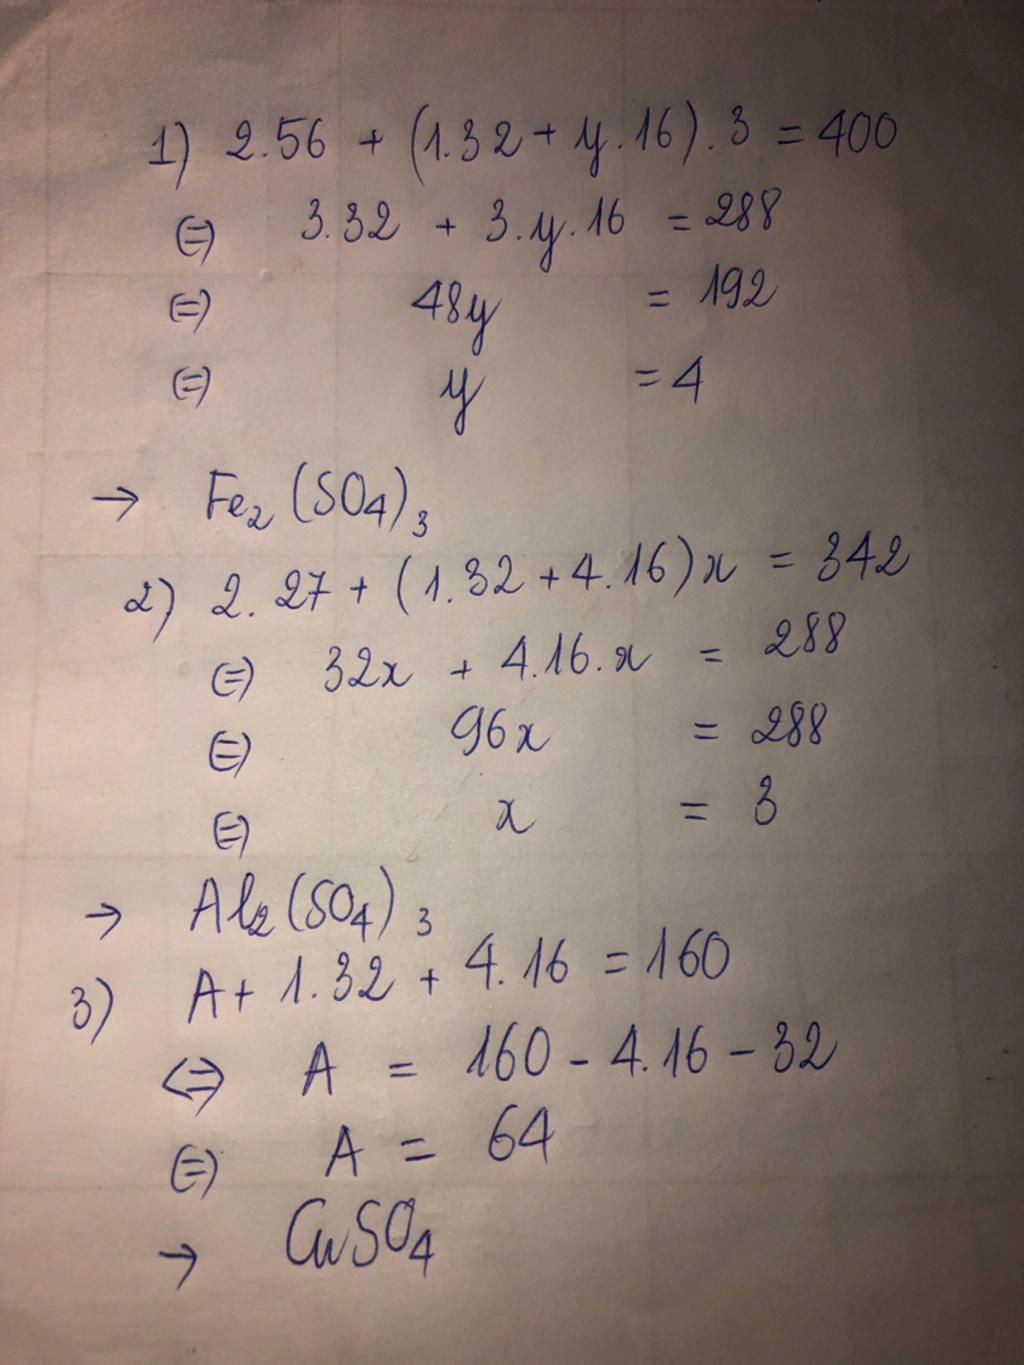 1) 2.56 + (1.32 + y.16).3 = 400
(=) 3.32 + 3.y.16 = 288
(=) 48y = 192
(=) y = 4
→ Fe₂(SO₄)₃
2) 2.27 + (1.32 + 4.16)x = 342
(=) 32x + 4.16.x = 288
(=) 96x = 288
(=) x = 3
→ Al₂(SO₄)₃
3) A + 1.32 + 4.16 = 160
<=> A = 160 - 4.16 - 32
(=) A = 64
→ CuSO₄